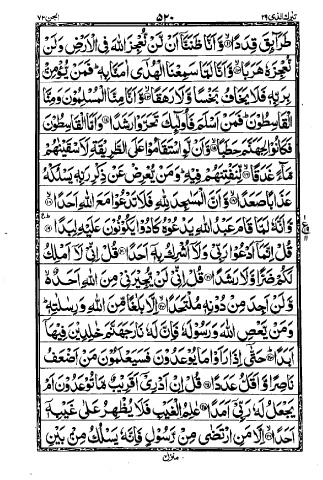 تبٰرك الذی ٢٩ ٥٢٠ الجن ٧٢
طَرَآئِقَ قِدَدًا ۝١١ وَّاَنَّا ظَنَنَّآ اَنْ لَّنْ نُّعْجِزَ اللّٰهَ فِي الْاَرْضِ وَلَنْ
نُّعْجِزَهٗ هَرَبًا ۝١٢ وَّاَنَّا لَمَّا سَمِعْنَا الْهُدٰٓى اٰمَنَّا بِهٖ ؕ فَمَنْ يُّؤْمِنْۢ
بِرَبِّهٖ فَلَا يَخَافُ بَخْسًا وَّلَا رَهَقًا ۝١٣ وَّاَنَّا مِنَّا الْمُسْلِمُوْنَ وَمِنَّا
الْقٰسِطُوْنَ ؕ فَمَنْ اَسْلَمَ فَاُولٰٓئِكَ تَحَرَّوْا رَشَدًا ۝١٤ وَاَمَّا الْقٰسِطُوْنَ
فَكَانُوْا لِجَهَنَّمَ حَطَبًا ۝١٥ وَّاَنْ لَّوِ اسْتَقَامُوْا عَلَى الطَّرِيْقَةِ لَاَسْقَيْنٰهُمْ
مَّآءً غَدَقًا ۝١٦ لِّنَفْتِنَهُمْ فِيْهِ ؕ وَمَنْ يُّعْرِضْ عَنْ ذِكْرِ رَبِّهٖ يَسْلُكْهُ
عَذَابًا صَعَدًا ۝١٧ وَّاَنَّ الْمَسٰجِدَ لِلّٰهِ فَلَا تَدْعُوْا مَعَ اللّٰهِ اَحَدًا ۝١٨
وَّاَنَّهٗ لَمَّا قَامَ عَبْدُ اللّٰهِ يَدْعُوْهُ كَادُوْا يَكُوْنُوْنَ عَلَيْهِ لِبَدًا ۝١٩
قُلْ اِنَّمَآ اَدْعُوْا رَبِّيْ وَلَآ اُشْرِكُ بِهٖٓ اَحَدًا ۝٢٠ قُلْ اِنِّيْ لَآ اَمْلِكُ
لَكُمْ ضَرًّا وَّلَا رَشَدًا ۝٢١ قُلْ اِنِّيْ لَنْ يُّجِيْرَنِيْ مِنَ اللّٰهِ اَحَدٌ
وَّلَنْ اَجِدَ مِنْ دُوْنِهٖ مُلْتَحَدًا ۝٢٢ اِلَّا بَلٰغًا مِّنَ اللّٰهِ وَرِسٰلٰتِهٖ ؕ
وَمَنْ يَّعْصِ اللّٰهَ وَرَسُوْلَهٗ فَاِنَّ لَهٗ نَارَ جَهَنَّمَ خٰلِدِيْنَ فِيْهَآ
اَبَدًا ۝٢٣ حَتّٰٓى اِذَا رَاَوْا مَا يُوْعَدُوْنَ فَسَيَعْلَمُوْنَ مَنْ اَضْعَفُ
نَاصِرًا وَّاَقَلُّ عَدَدًا ۝٢٤ قُلْ اِنْ اَدْرِيْٓ اَقَرِيْبٌ مَّا تُوْعَدُوْنَ اَمْ
يَجْعَلُ لَهٗ رَبِّيْٓ اَمَدًا ۝٢٥ عٰلِمُ الْغَيْبِ فَلَا يُظْهِرُ عَلٰى غَيْبِهٖٓ
اَحَدًا ۝٢٦ اِلَّا مَنِ ارْتَضٰى مِنْ رَّسُوْلٍ فَاِنَّهٗ يَسْلُكُ مِنْۢ بَيْنِ